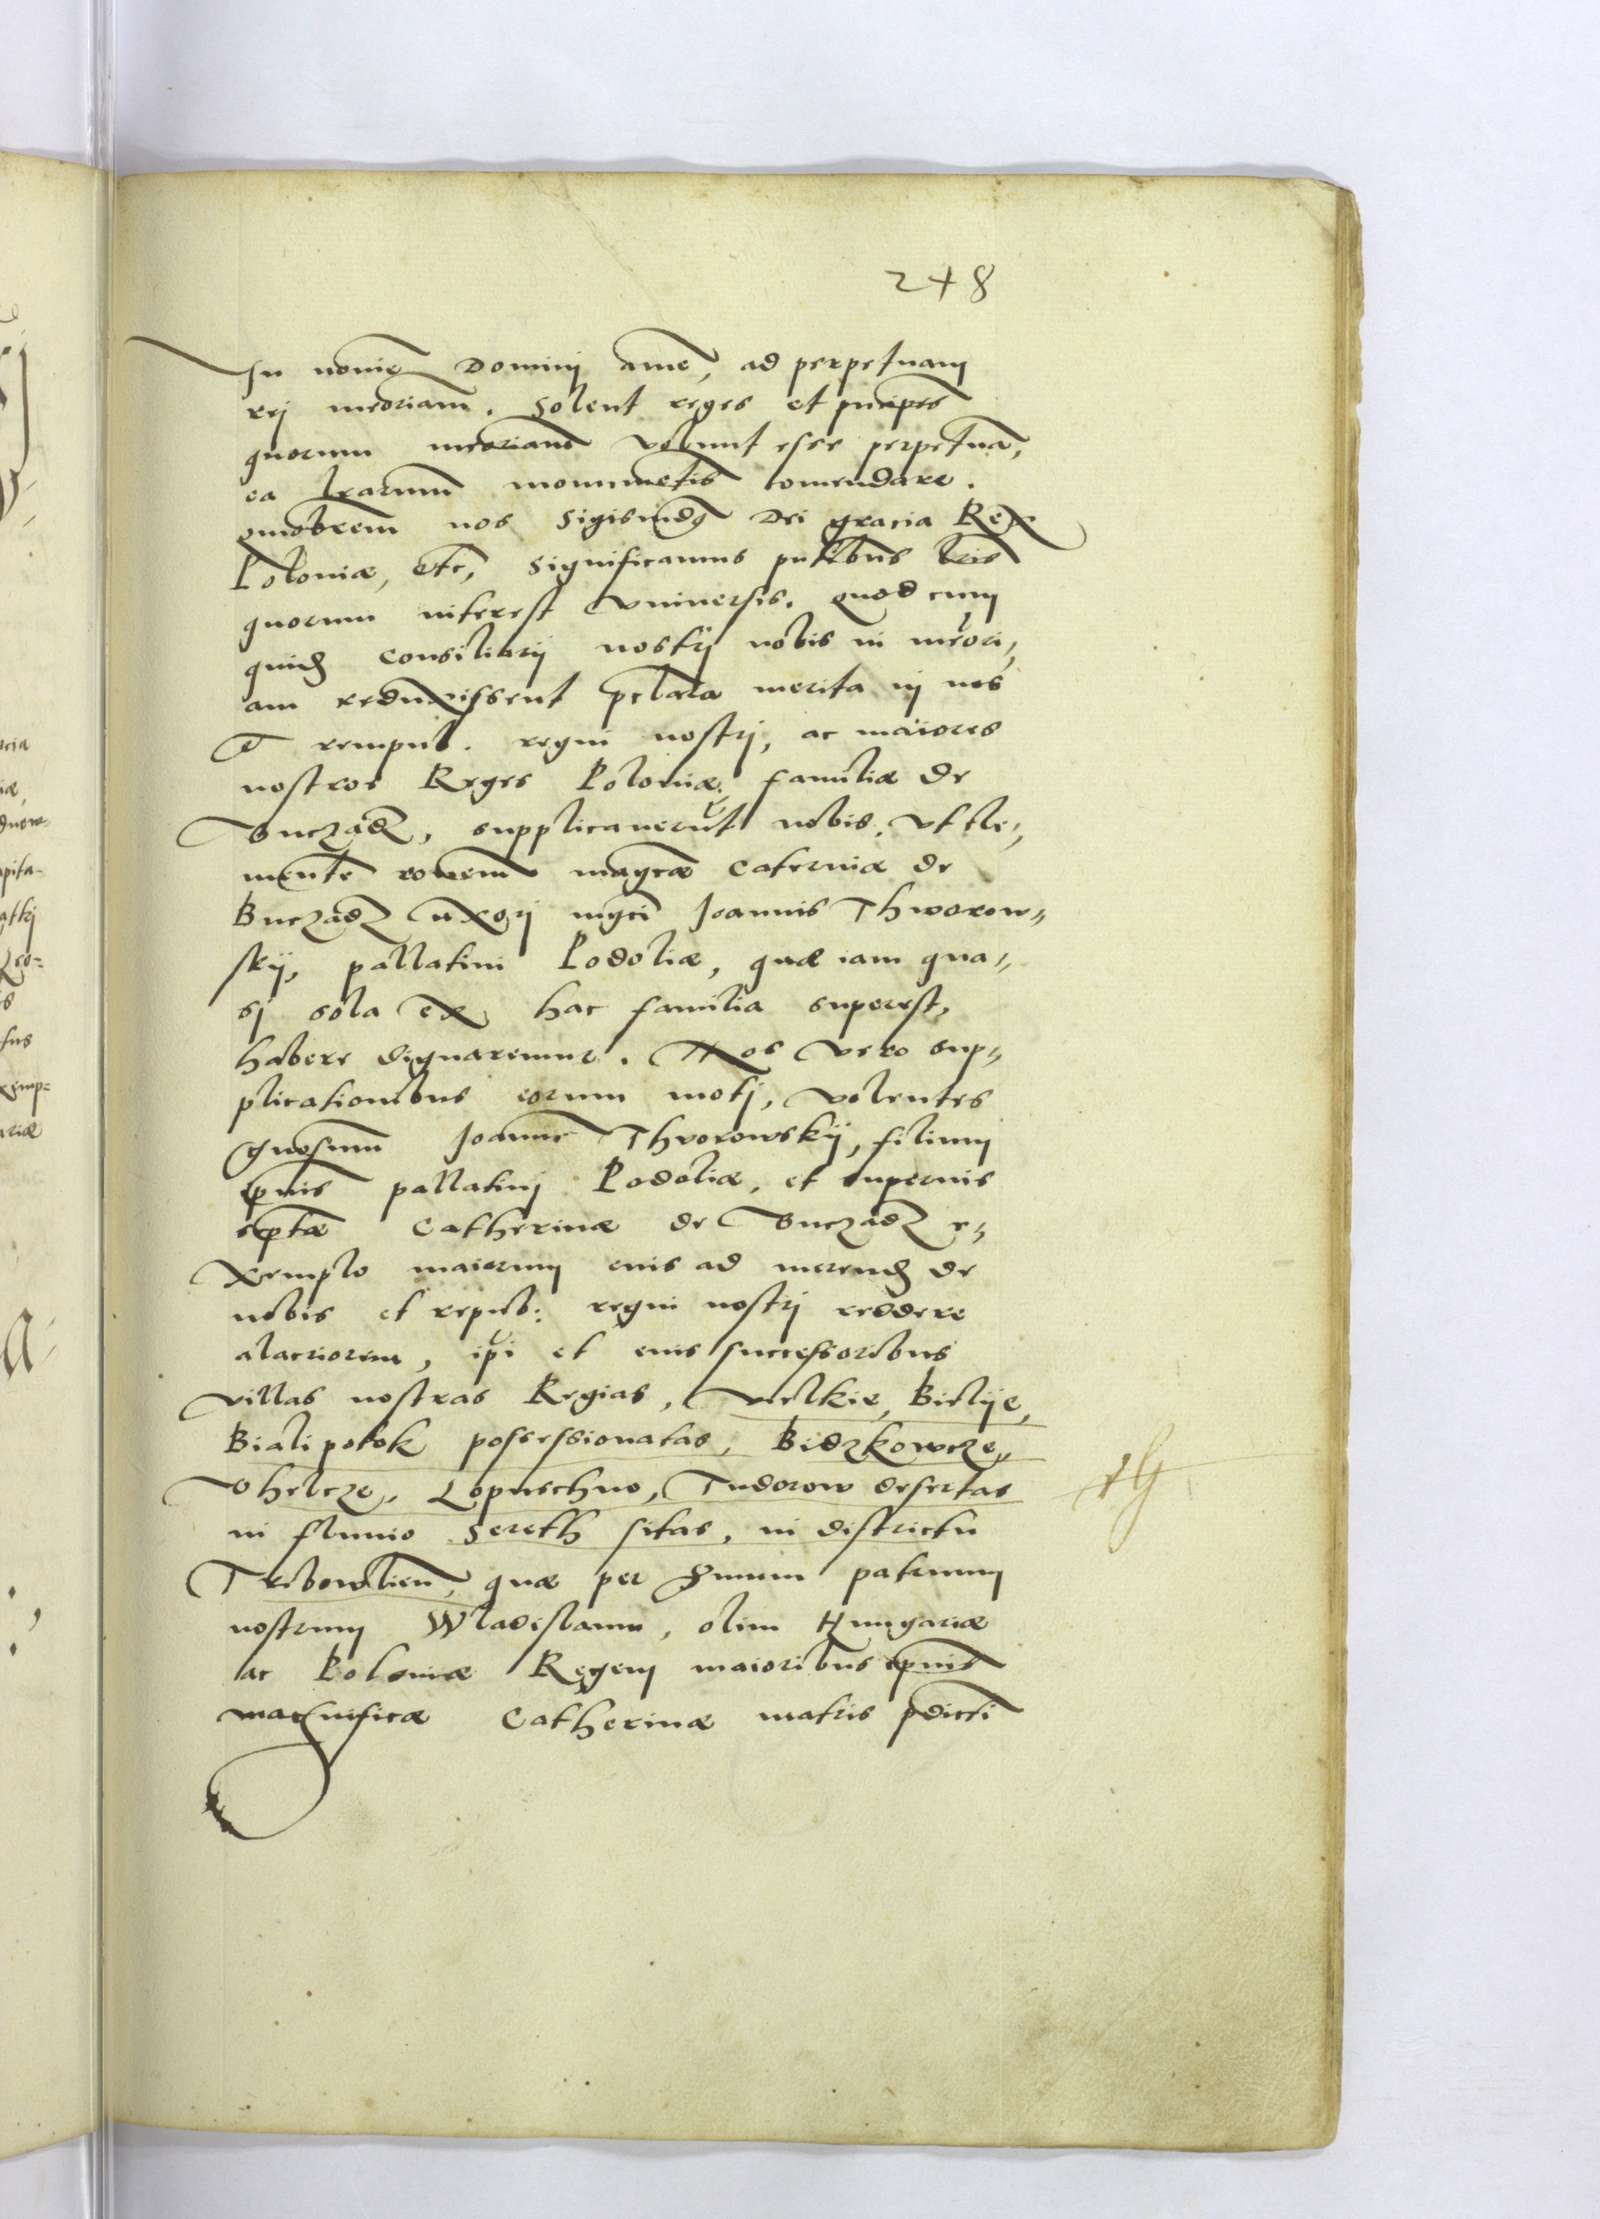 248
In nomīe Dominj amē, ad perpetuam
rej meoriam. Solent reges et principes
quorum meoriam volunt esse perpetuā,
ea lrarum monumētis comendare.
quiobrem nos Sigismūdꝰ Dei gracia Rex
Poloniæ, etc, significamus pntibus lris
quorum interest vniuersis. quod cum
quidā consiliarij nostrj nobis in meori,,
am reduxissent pclara merita in nos
et rempub. regni nostrj, ac maiores
nostros Reges Poloniæ, familiæ de
Buczadz, supplicauerūt nobis, vt cle,,
mentē rōnem magcæ Caterinæ de
Buczadz vxorj mgci Joannis Thworow,,
skij, pallatini Podoliæ, quæ iam qua,,
sj sola ex hac familia superest,
habere dignaremur. Nos vero sup,,
plicationibus eorum motj, volentes
gnosum Joannē Thworowskij, filium
eiusd pallatinj Podoliæ, et supernis
scptæ Catherinæ de Buczadz e,,
xemplo maiorum eius ad merendū de
nobis et repub: regni nostrj reddere
alacriorem, ipi et eius successoribus
villas nostras Regias, Vielkie, Bielije,
Bialipotok possessionatas, Bidzkowcze,,
Vhelcze, Lopuschno, Tudorow desertas
in fluuio Sereth sitas, in districtu
Trebowlien, quæ per Smum patruum
nostrum Wladislaum, olim Hungariæ
ac Poloniæ Regem maioribus
magnificæ Catherinæ matris pdicti